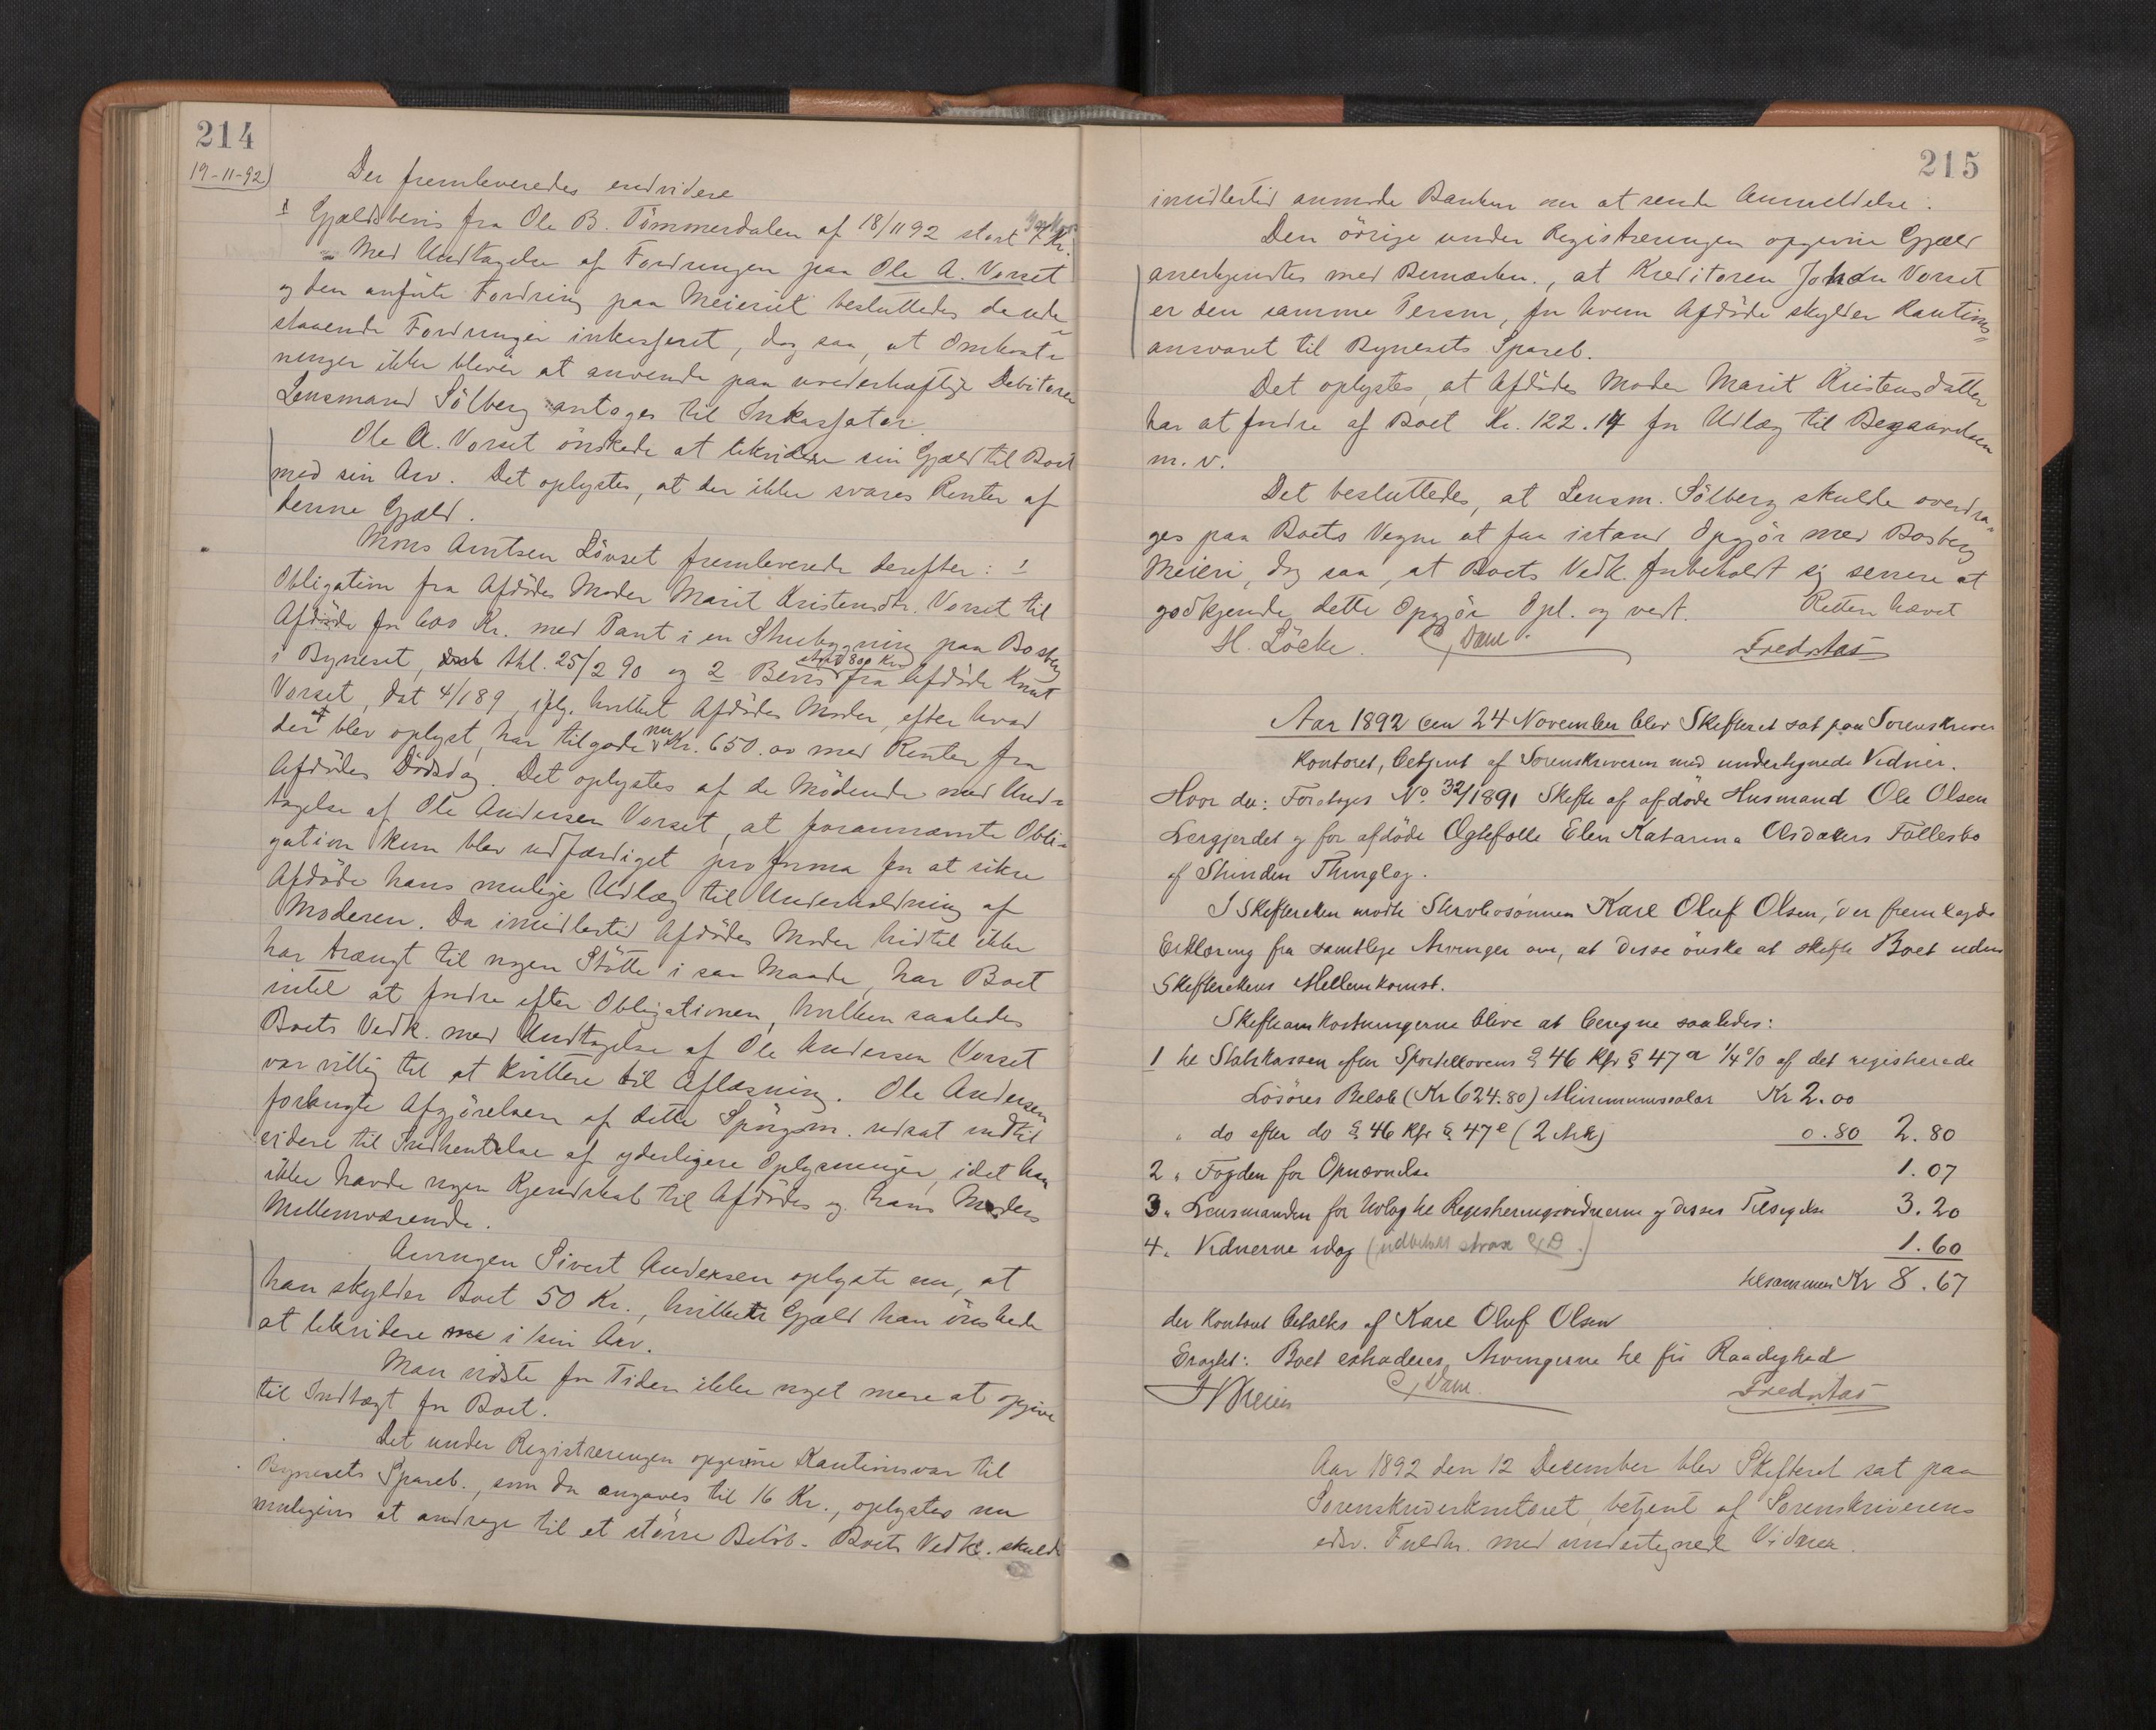 214
19-11-92)
Der fremleveredes endvidere
1 Gjældsbevis fra Ole B. Tömmerdalen af 18/11 92 stort 7 Kr.
Med Undtagelse af Fordringen paa Ole A. Vorset
og den anførte Fordring paa Meieriet besluttedes de ude-
staaende Fordringer inkasseret, dog saa, at Omkost-
ninger ikke bliver at anvende paa uvederhæftige Debitorer
Lensmand Sölberg antages til Inkassator.
Ole A. Vorset önskede at likvidere sin Gjæld til Boet
med sin Arv. Det oplystes, at der ikke svares Renter af
denne Gjæld.
Mons Arntsen Lövset fremleverede derefter: 1
Obligation fra Afdödes Moder Marit Kristensdtr. Vorset til
Afdöde for 600 Kr. med Pant i en Stuebygning paa Bosberg
i Byneset, thl. 25/2 90 og 2 Bevis stort 800 Kr. fra Afdöde Knut
Vorset, dat 4/1 89, iflg. hvilket Afdödes Moder, efter hvad
der blev oplyst, har tilgode nu Kr. 650.00 med Renter fra
Afdödes Dödsdag. Det oplystes af de Mödende med Und-
tagelse af Ole Andersen Vorset, at forannævnte Obli-
gation kun blev udfærdiget pro forma for at sikre
Afdöde hans mulige Udlæg til Underholdning af
Moderen. Da imidlertid Afdödes Moder hidtil ikke
har trængt til nogen Stötte i saa Maade, har Boet
intet at fordre efter Obligationen, hvilken saaledes
Boets Vedk. med Undtagelse af Ole Andersen Vorset
var villig til at kvittere til Aflæsning. Ole Andersen
forlangte Afgjörelsen af dette Spörgsm. udsat indtil
videre til Indhentelse af yderligere Oplysninger, idet han
ikke havde nogen Kjendskab til Afdödes og hans Moders
Mellemværende.
Arvingen Sivert Andersen oplyste nu, at
han skylder Boet 50 Kr., hvilken Gjæld han önskede
at likvidere i sin Arv.
Man vidste for Tiden ikke noget mere at opgive
til Indtægt for Boet.
Det under Registreringen opgivne Kautionsvar til
Bynesets Spareb., som da angaves til 16 Kr., oplystes nu
muligens at andrage til et større Belöb. Boets Vedk. skulde
215
imidlertid anmode Banken om at sende Anmeldelse.
Den övrige under Registreringen opgivne Gjæld
anerkjendtes med Bemærkn., at Kreditoren Johan Vorset
er den samme Person, for hvem Afdöde skylder Kautions-
ansvaret til Bynesets Spareb.
Det oplystes, at Afdödes Moder Marit Kristensdatter
har at fordre af Boet Kr. 122.14 for Udlæg til Begravelsen
m. v.
Det besluttedes, at Lensm. Sölberg skulde overdra-
ges paa Boets Vegne at faa istand Opgjör med Bosberg
Meieri, dog saa, at Boets Vedk. forbeholdt sig senere at
godkjende dette Opgjör Opl. og vedt. Retten hævet
H. Löcke. C Dam. Fredr Aas
Aar 1892 den 24 November blev Skifteret sat paa Sorenskriver
kontoret, betjent af Sorenskriveren med undertegnede Vidner.
Hvor da: Foretoges No 32/1891 Skifte af afdöde Husmand Ole Olsen
Lergjerdet og for afdöde Ægtefolle Elen Katarina Olsdatters Follesbo
af Strinden Thinglag.
I Skifteretten mødte Stervbosönnen Karl Oluf Olsen, der fremlagde
Erklæring fra samtlige Arvinger om, at disse önske at skifte Boet uden
Skifterettens Mellemkomst.
Skifteomkostningerne blive at beregne saaledes:
1 til Statskassen efter Sportellovens § 46 kfr § 47 a 1/4 % af det registrerede
Lösöres Belöb (Kr 624.80) Minimumssalær Kr 2.00
" do efter do § 46 kfr § 47 e (2 Ark) 0.80 2.80
2 " Fogden for Opnævnelse 1.07
3 " Lensmanden for Udlæg til Registreringsvidnerne og disses Tilsigelse 3.20
4 " Vidnerne idag (udbetalt strax CD.) 1.60
tilsammen Kr 8.67
der kontant betaltes af Karl Oluf Olsen
Eragtet: Boet extraderes Arvingerne til fri Raadighed
C Dam. Fredr Aas
Aar 1892 den 12 December blev Skifteret sat paa
Sorenskriverkontoret, betjent af Sorenskriverens
edsv. Fuldm. med undertegnede Vidner.